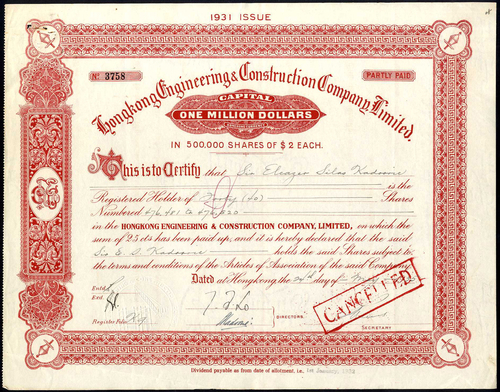 1931 ISSUE
No. 3758
PARTLY PAID
Hongkong Engineering & Construction Company, Limited.
CAPITAL
ONE MILLION DOLLARS
IN 500,000 SHARES OF $2 EACH.
This is to Certify that Sir Eleazer Silas Kadoorie
is the
Registered Holder of Forty (40) Shares
Numbered 476,481 to 476,520
in the HONGKONG ENGINEERING & CONSTRUCTION COMPANY, LIMITED, on which the
sum of 25 cts has been paid up, and it is hereby declared that the said
Sir E. S. Kadoorie holds the said Shares subject to
the terms and conditions of the Articles of Association of the said Company.
Dated at Hongkong, the 24th day of
CANCELLED
Entd.
Exd.
Register Folio
DIRECTORS.
SECRETARY
Dividend payable as from date of allotment, i.e., 1st January, 1932